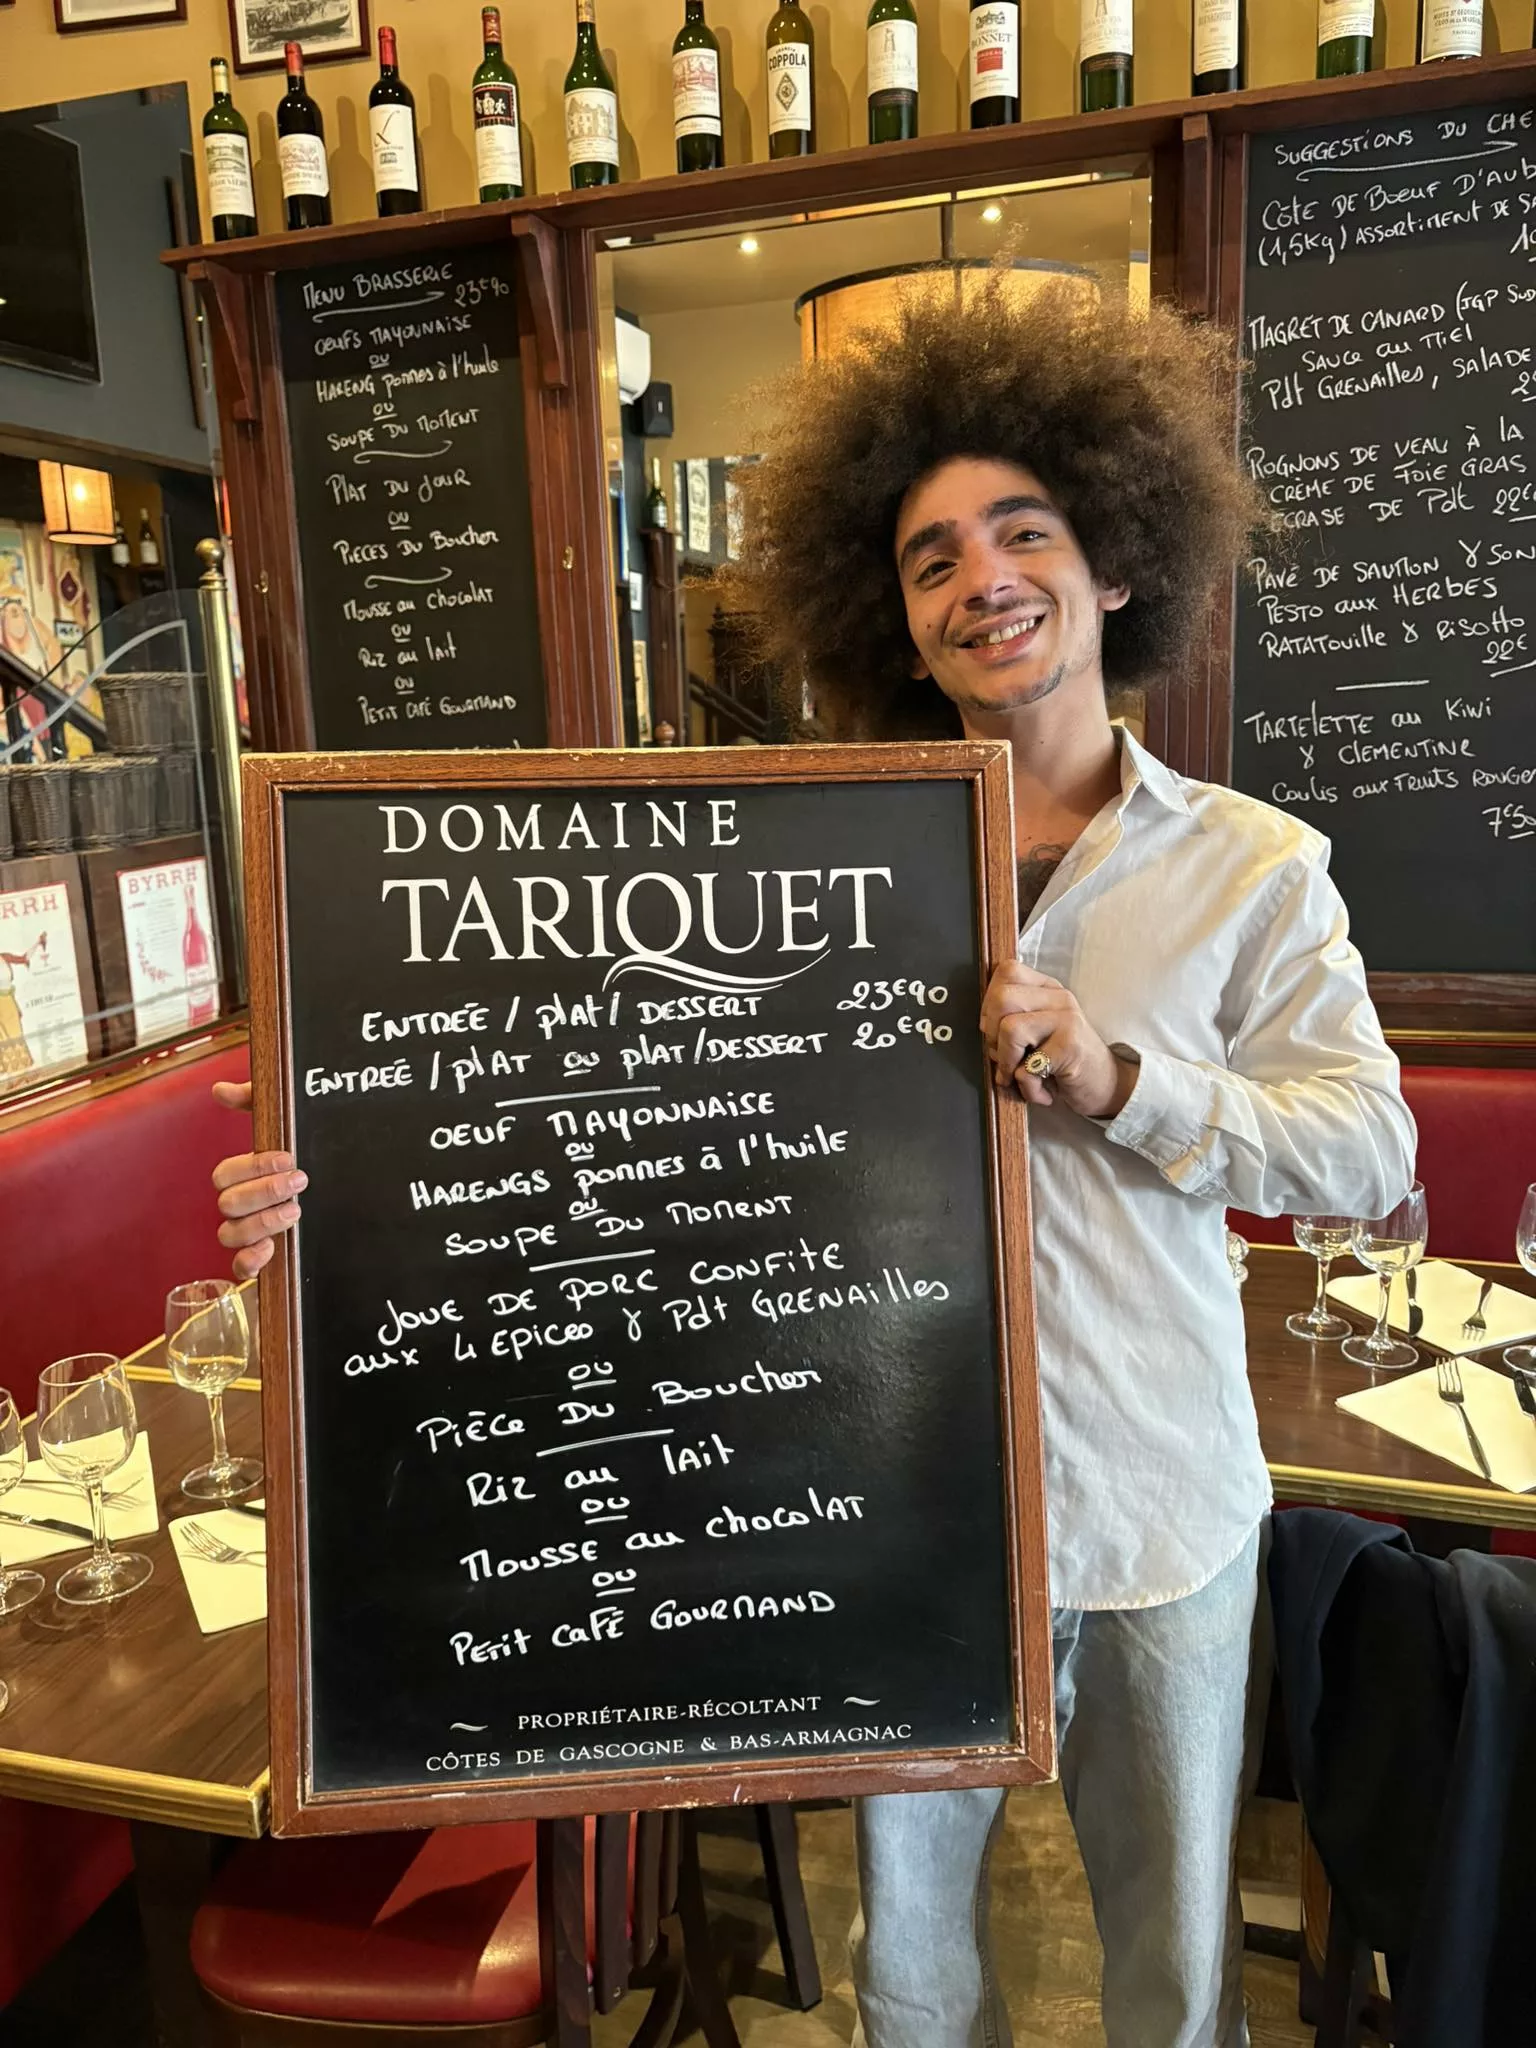 COPPOLA
BONNET
MENU BRASSERIE
23€90
OEUFS MAYOUNAISE
OU
HARENG POMMES à l'huile
OU
SOUPE DU MOMENT
PLAT DU JOUR
OU
PIECES DU BOUCHER
MOUSSE au CHOCOLAT
OU
RIZ au lait
OU
PETIT CAFÉ GOURMAND
SUGGESTIONS DU CHE
CÔTE DE BOEUF D'AUB
(1,5Kg) ASSORTIMENT DE SA
MAGRET DE CANARD (IGP SUD
SAUCE au MIEL
Pdt GRENAILLES, SALADE
ROGNONS DE VEAU À LA
CRÈME DE FOIE GRAS
ECRASE DE Pdt 22€
PAVÉ DE SAUMON & SON
PESTO aux HERBES
RATATOUILLE & RISOTTO
22€
TARTELETTE au KIWI
& CLEMENTINE
COULIS aux FRUITS ROUGE
7€50
RRH
BYRRH
DOMAINE
TARIQUET
ENTREÉ / plat / DESSERT 23€90
ENTREÉ / plAT ou plAT/DESSERT 20€90
OEUF MAYONNAISE
OU
HARENGS POMMES à l'huile
OU
SOUPE DU MOMENT
JOUE DE PORC CONFITE
aux 4 EPICES & Pdt GRENAILLES
OU
PIÈCE DU BOUCHER
RIZ au lAIT
OU
MOUSSE au chocolAT
OU
PETIT CAFÉ GOURMAND
PROPRIÉTAIRE-RÉCOLTANT
CÔTES DE GASCOGNE & BAS-ARMAGNAC